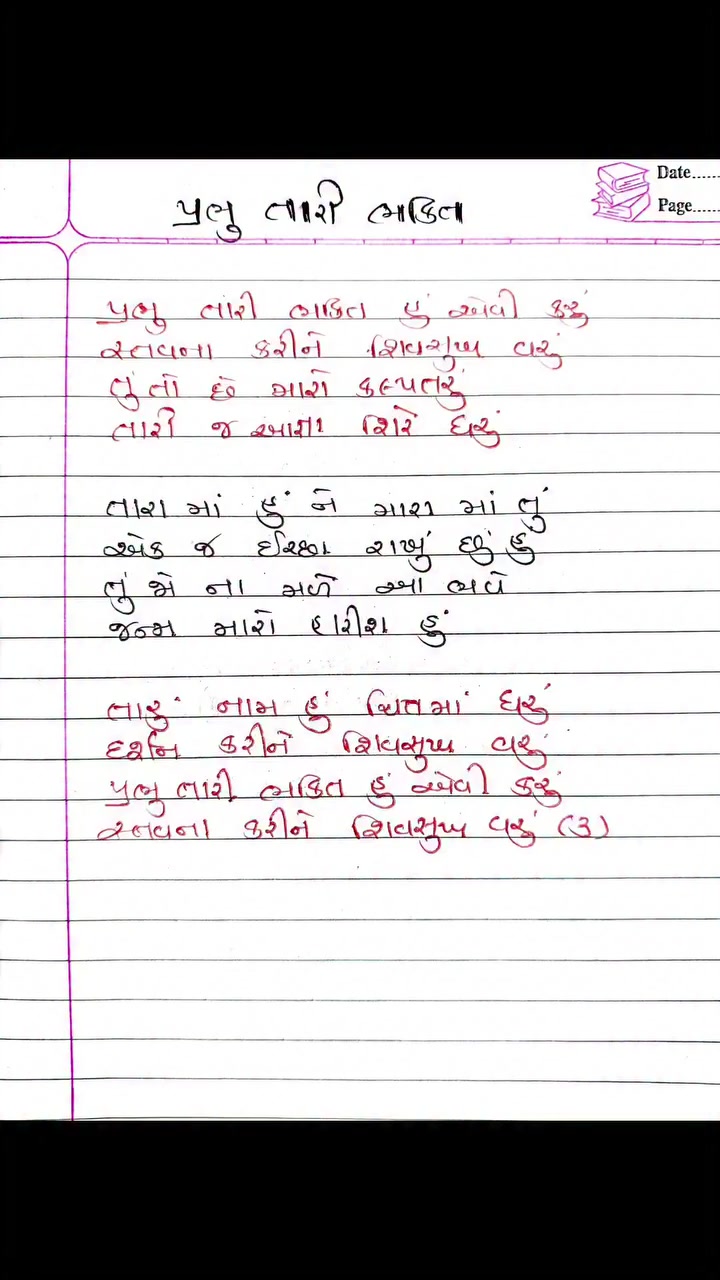 Date......
Page......
પ્રભુ તારી ભકિત
પ્રભુ તારી ભકિત હું એવી કરું
સ્તવના કરીને શિવસુખ વરું
તું તો છે મારો કલ્પતરું
તારી જ આજ્ઞા શિરે ધરું
તારા માં હું ને મારા માં તું
એક જ ઈચ્છા રાખું છું હું
તું જો ના મળે આ ભવે
જન્મ મારો હારીશ હું
તારું નામ હું ચિત્તમાં ધરું
દર્શન કરીને શિવસુખ વરું
પ્રભુ તારી ભકિત હું એવી કરું
સ્તવના કરીને શિવસુખ વરું (૩)